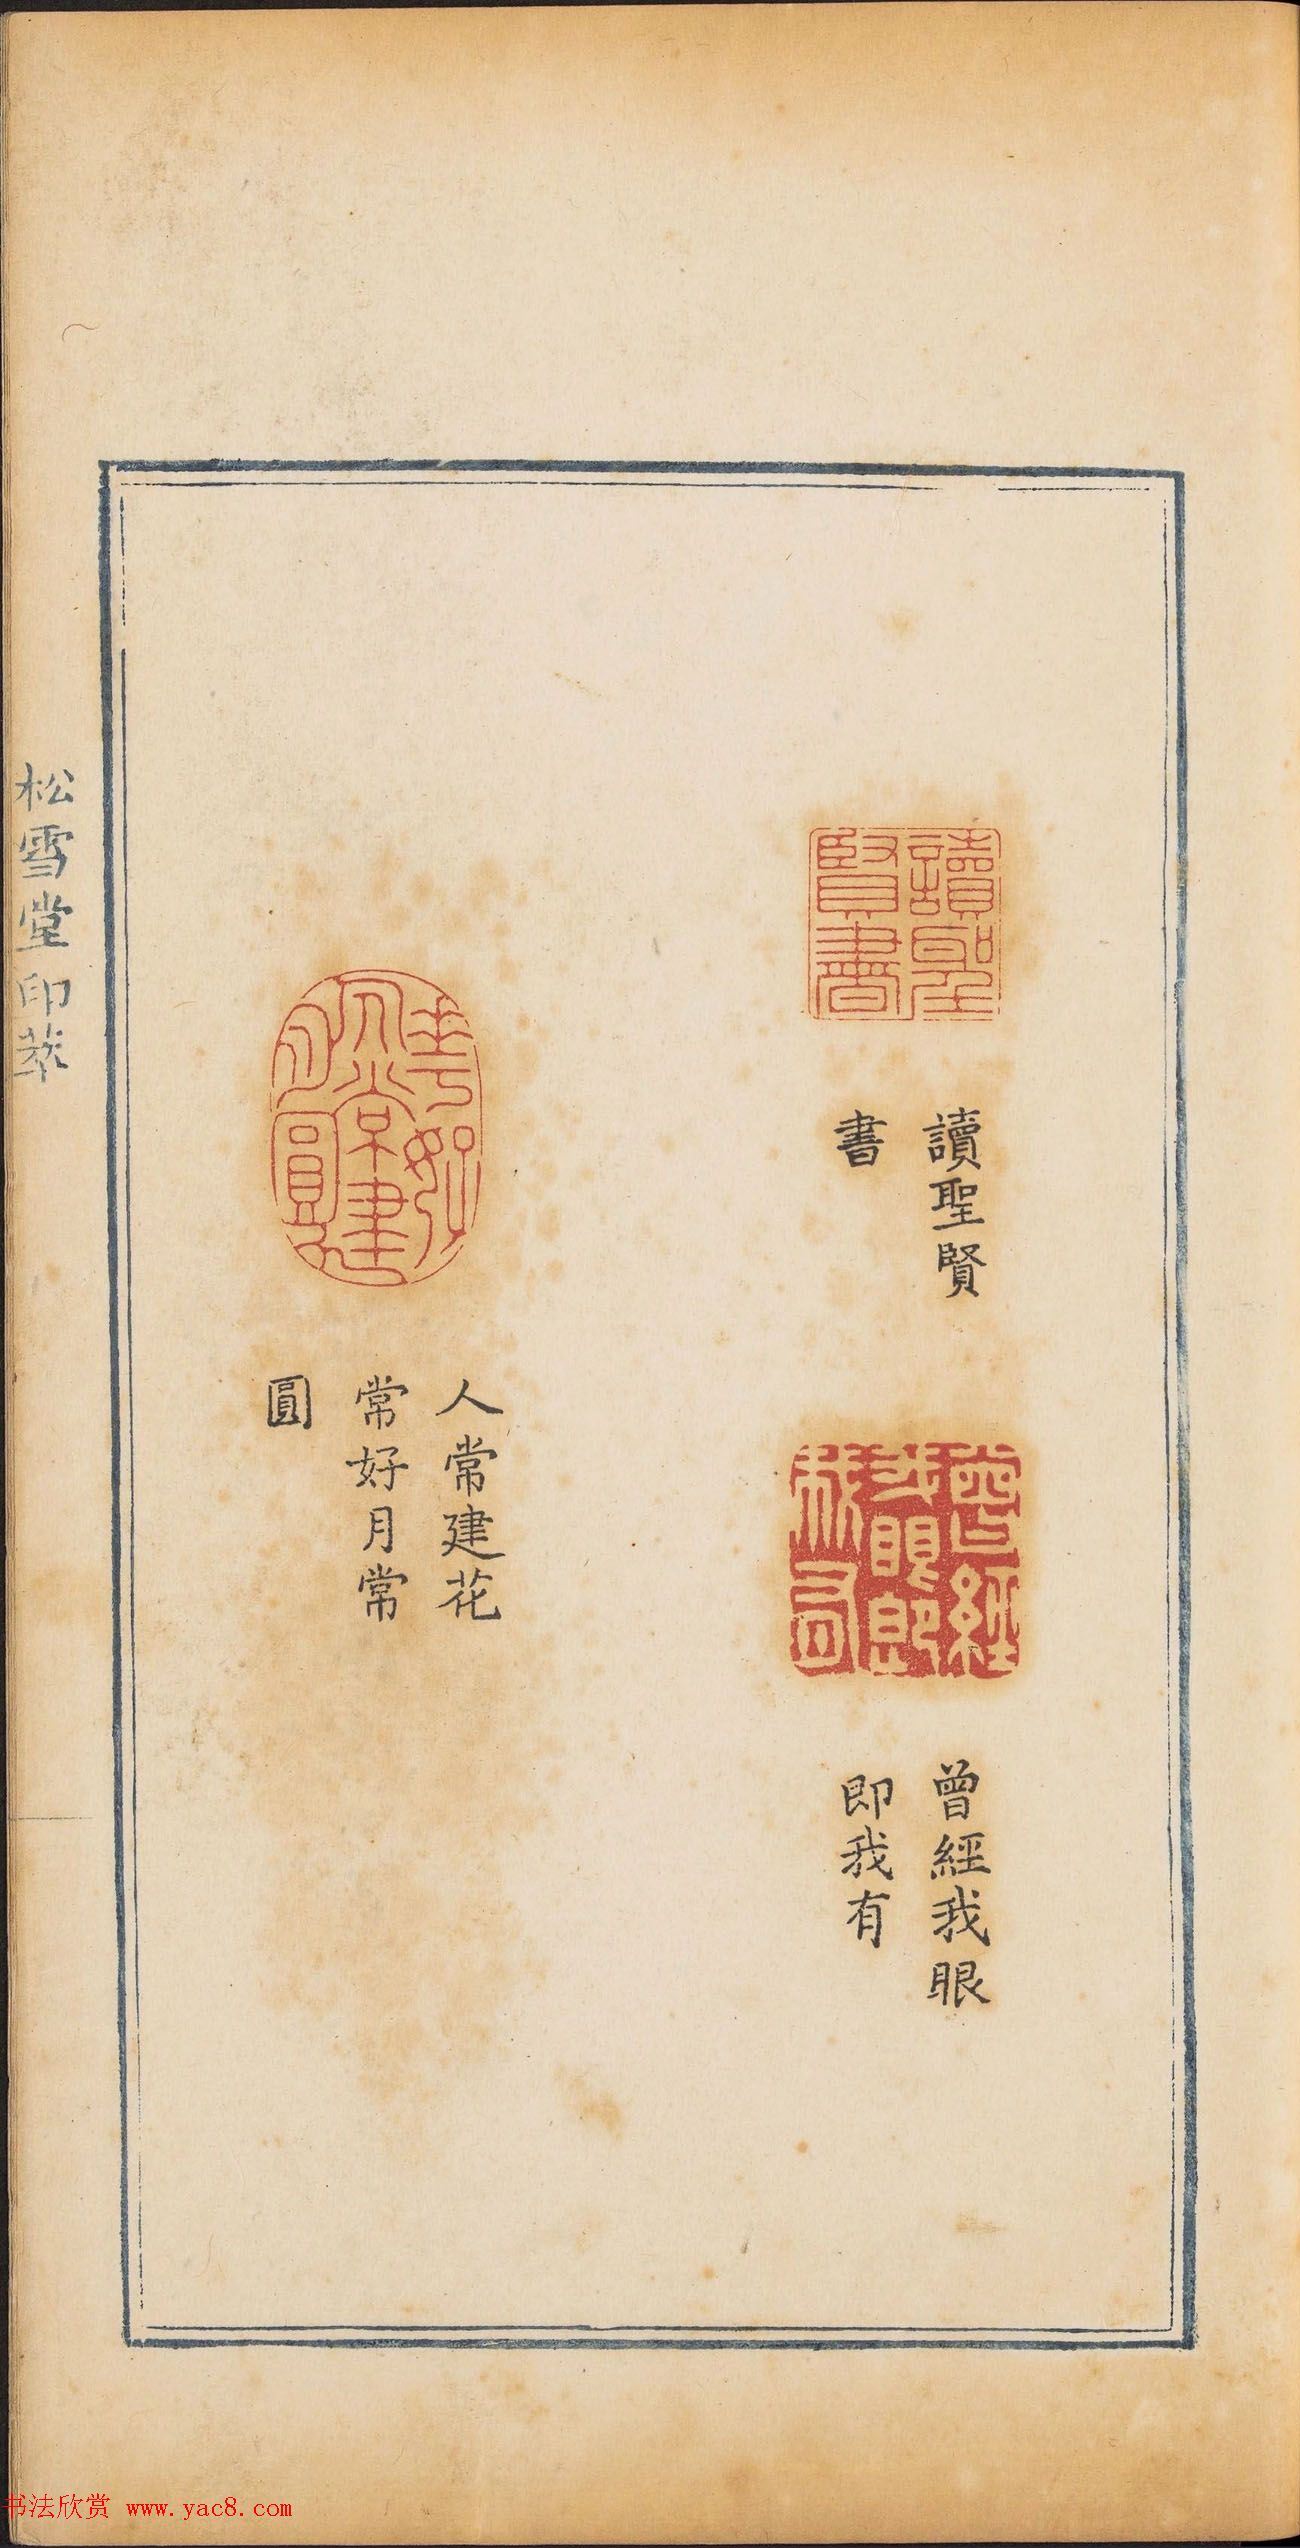 讀聖
賢書
讀聖賢
書
曾經
我眼即
我有
曾經我眼
即我有
人常建花
常好月常
圓
松雪堂印萃
书法欣赏 www.yac8.com